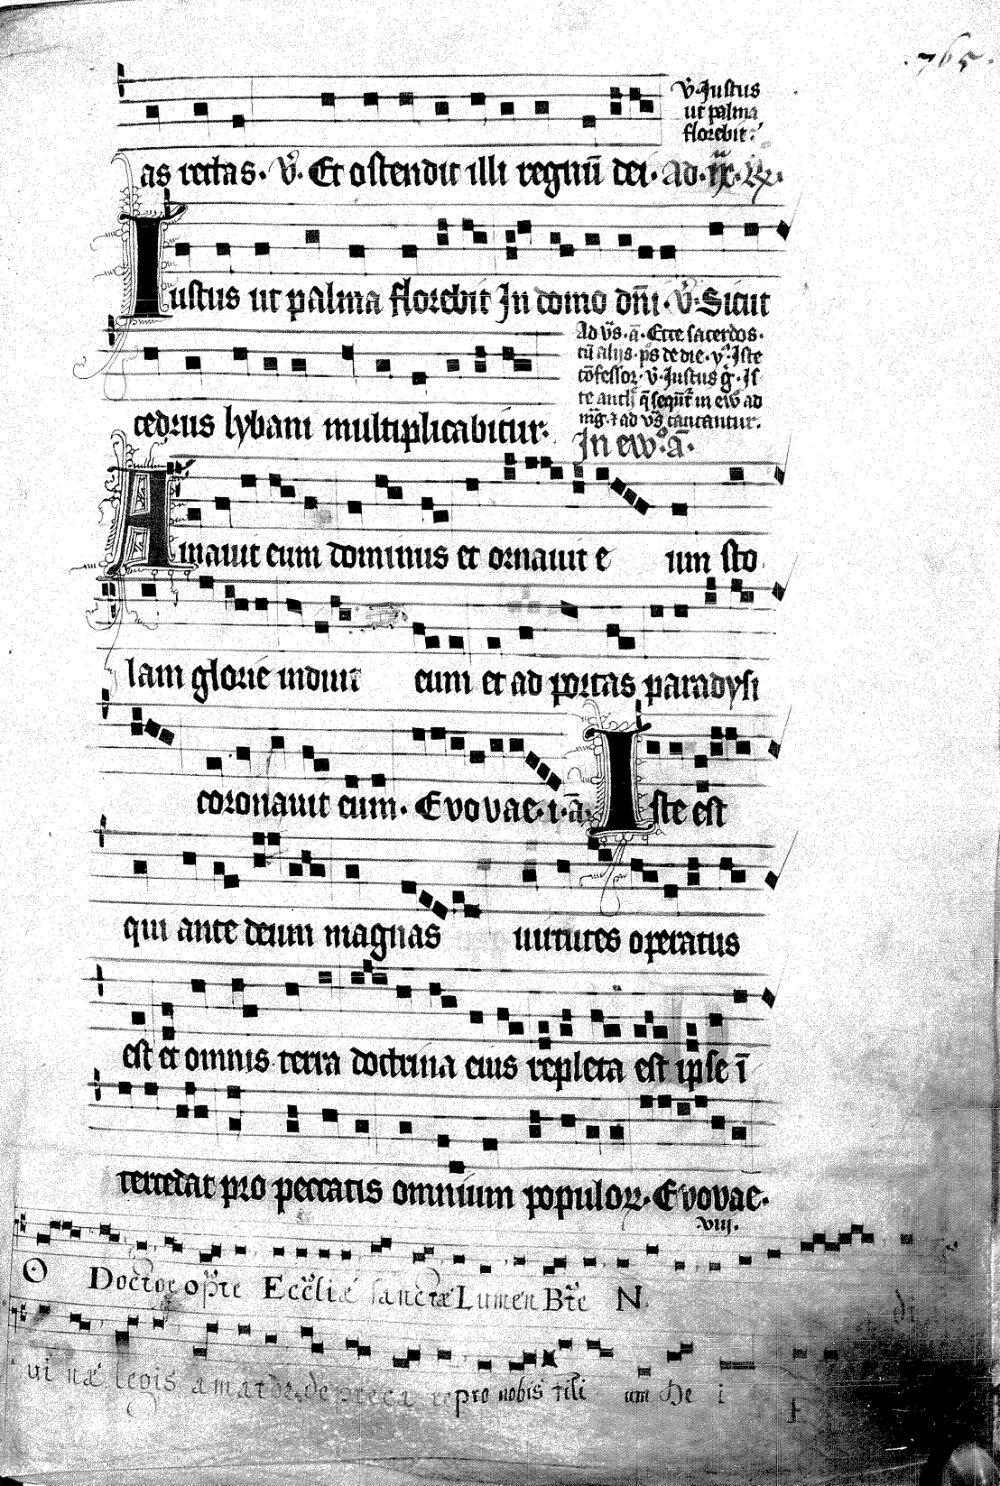 .765.
℣. Justus
ut palma
florebit.
as rectas. ℣. Et ostendit illi regnū dei. Ad. ix.
Iustus ut palma florebit In domo dn̄i. ℣. Sicut
Ad v̄s. ā. Ecce sacerdos.
cū alijs. p̄s de die. y. Iste
cōfessor. ℣. Justus ḡ. Is
te antī q̄ sequūt in ew̄ ad
mḡ. ⁊ ad v̄s cantantur.
cedrus lybani multiplicabitur.
In ew̄. ā.
Amavit eum dominus et ornavit e um sto
lam glorie induit eum et ad portas paradysi
coronavit eum. Evovae. i. ā. Iste est
qui ante deum magnas virtutes operatus
est et omnis terra doctrina eius repleta est ipse ī
tercedat pro peccatis omnium populoꝝ. Evovae.
viij.
O Doctor op̄te Eccl̄iæ sanctæ Lumen Bt̄e N.
vi næ legis amator, depreca re pro nobis fili um De i